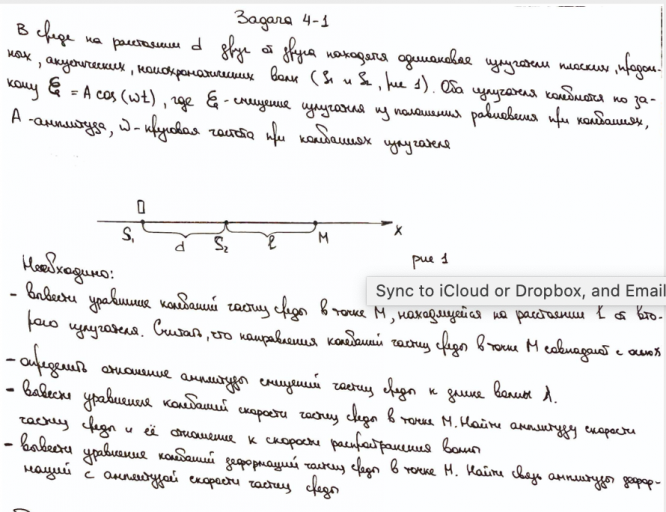 Задача 4-1
В среде на расстоянии d друг от друга находятся одинаковые излучатели плоских, продоль-
ных, акустических, монохроматических волн (S₁ и S₂, рис 1). Оба излучателя колеблются по за-
кону ξ = A cos(ωt), где ξ - смещение излучателя из положения равновесия при колебаниях,
A - амплитуда, ω - круговая частота при колебаниях излучателя
0
S₁ d S₂ ℓ M x
рис 1
Необходимо:
Sync to iCloud or Dropbox, and Email
- вывести уравнение колебаний частиц среды в точке M, находящейся на расстоянии ℓ от вто-
рого излучателя. Считать, что направления колебаний частиц среды в точке M совпадают с осью
- определить отношение амплитуды смещений частиц среды к длине волны λ.
- вывести уравнения колебаний скорости частиц среды в точке M. Найти амплитуду скорости
частиц среды и её отношение к скорости распространения волны
- вывести уравнения колебаний деформаций частиц среды в точке M. Найти связь амплитуды дефор-
маций с амплитудой скорости частиц среды